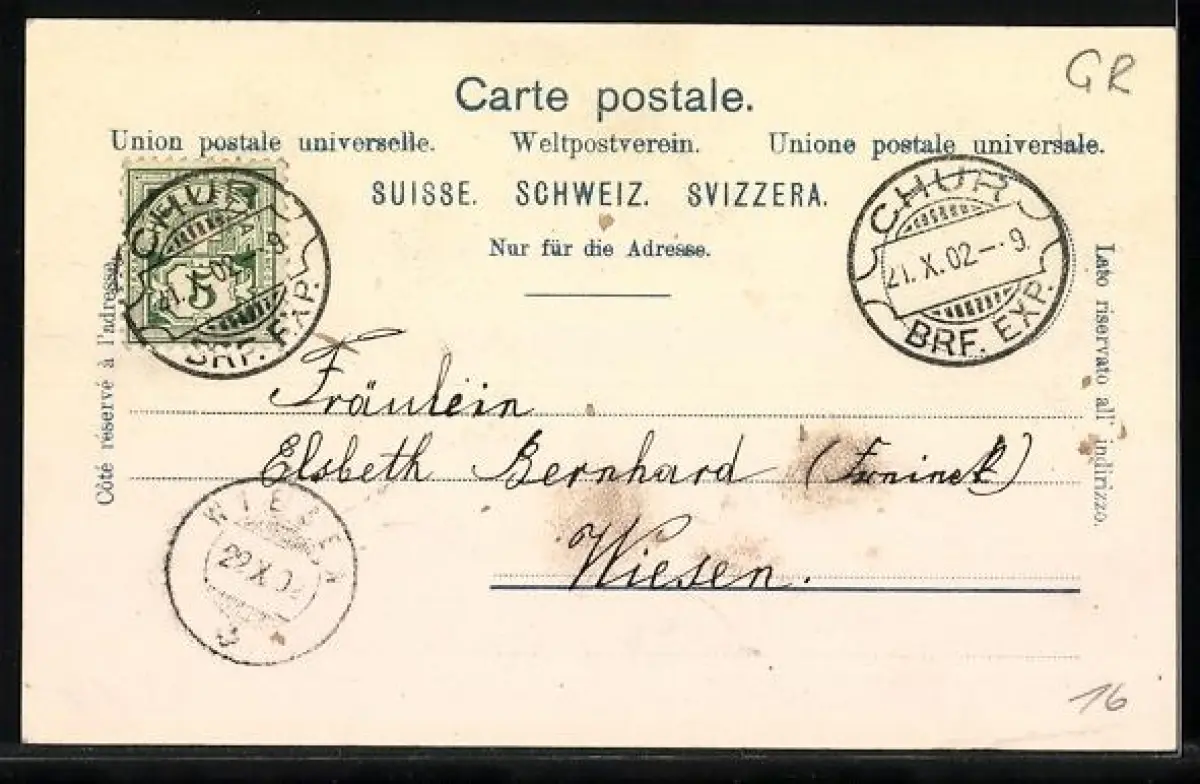 GR
Carte postale.
Union postale universelle. Weltpostverein. Unione postale universale.
SUISSE. SCHWEIZ. SVIZZERA.
Nur für die Adresse.
CHUR
21.X.02-·9
BRF. EXP.
5
CHUR
21.X.02-·9
BRF. EXP.
Côté réservé à l'adresse.
Lato riservato all' indirizzo.
Fräulein
Elsbeth Bernhard
Wiesen.
WIESEN
22.X.02
16